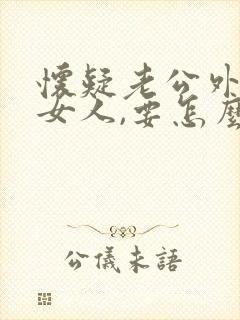 懷疑老公外
女人,要怎麼
公儀未語